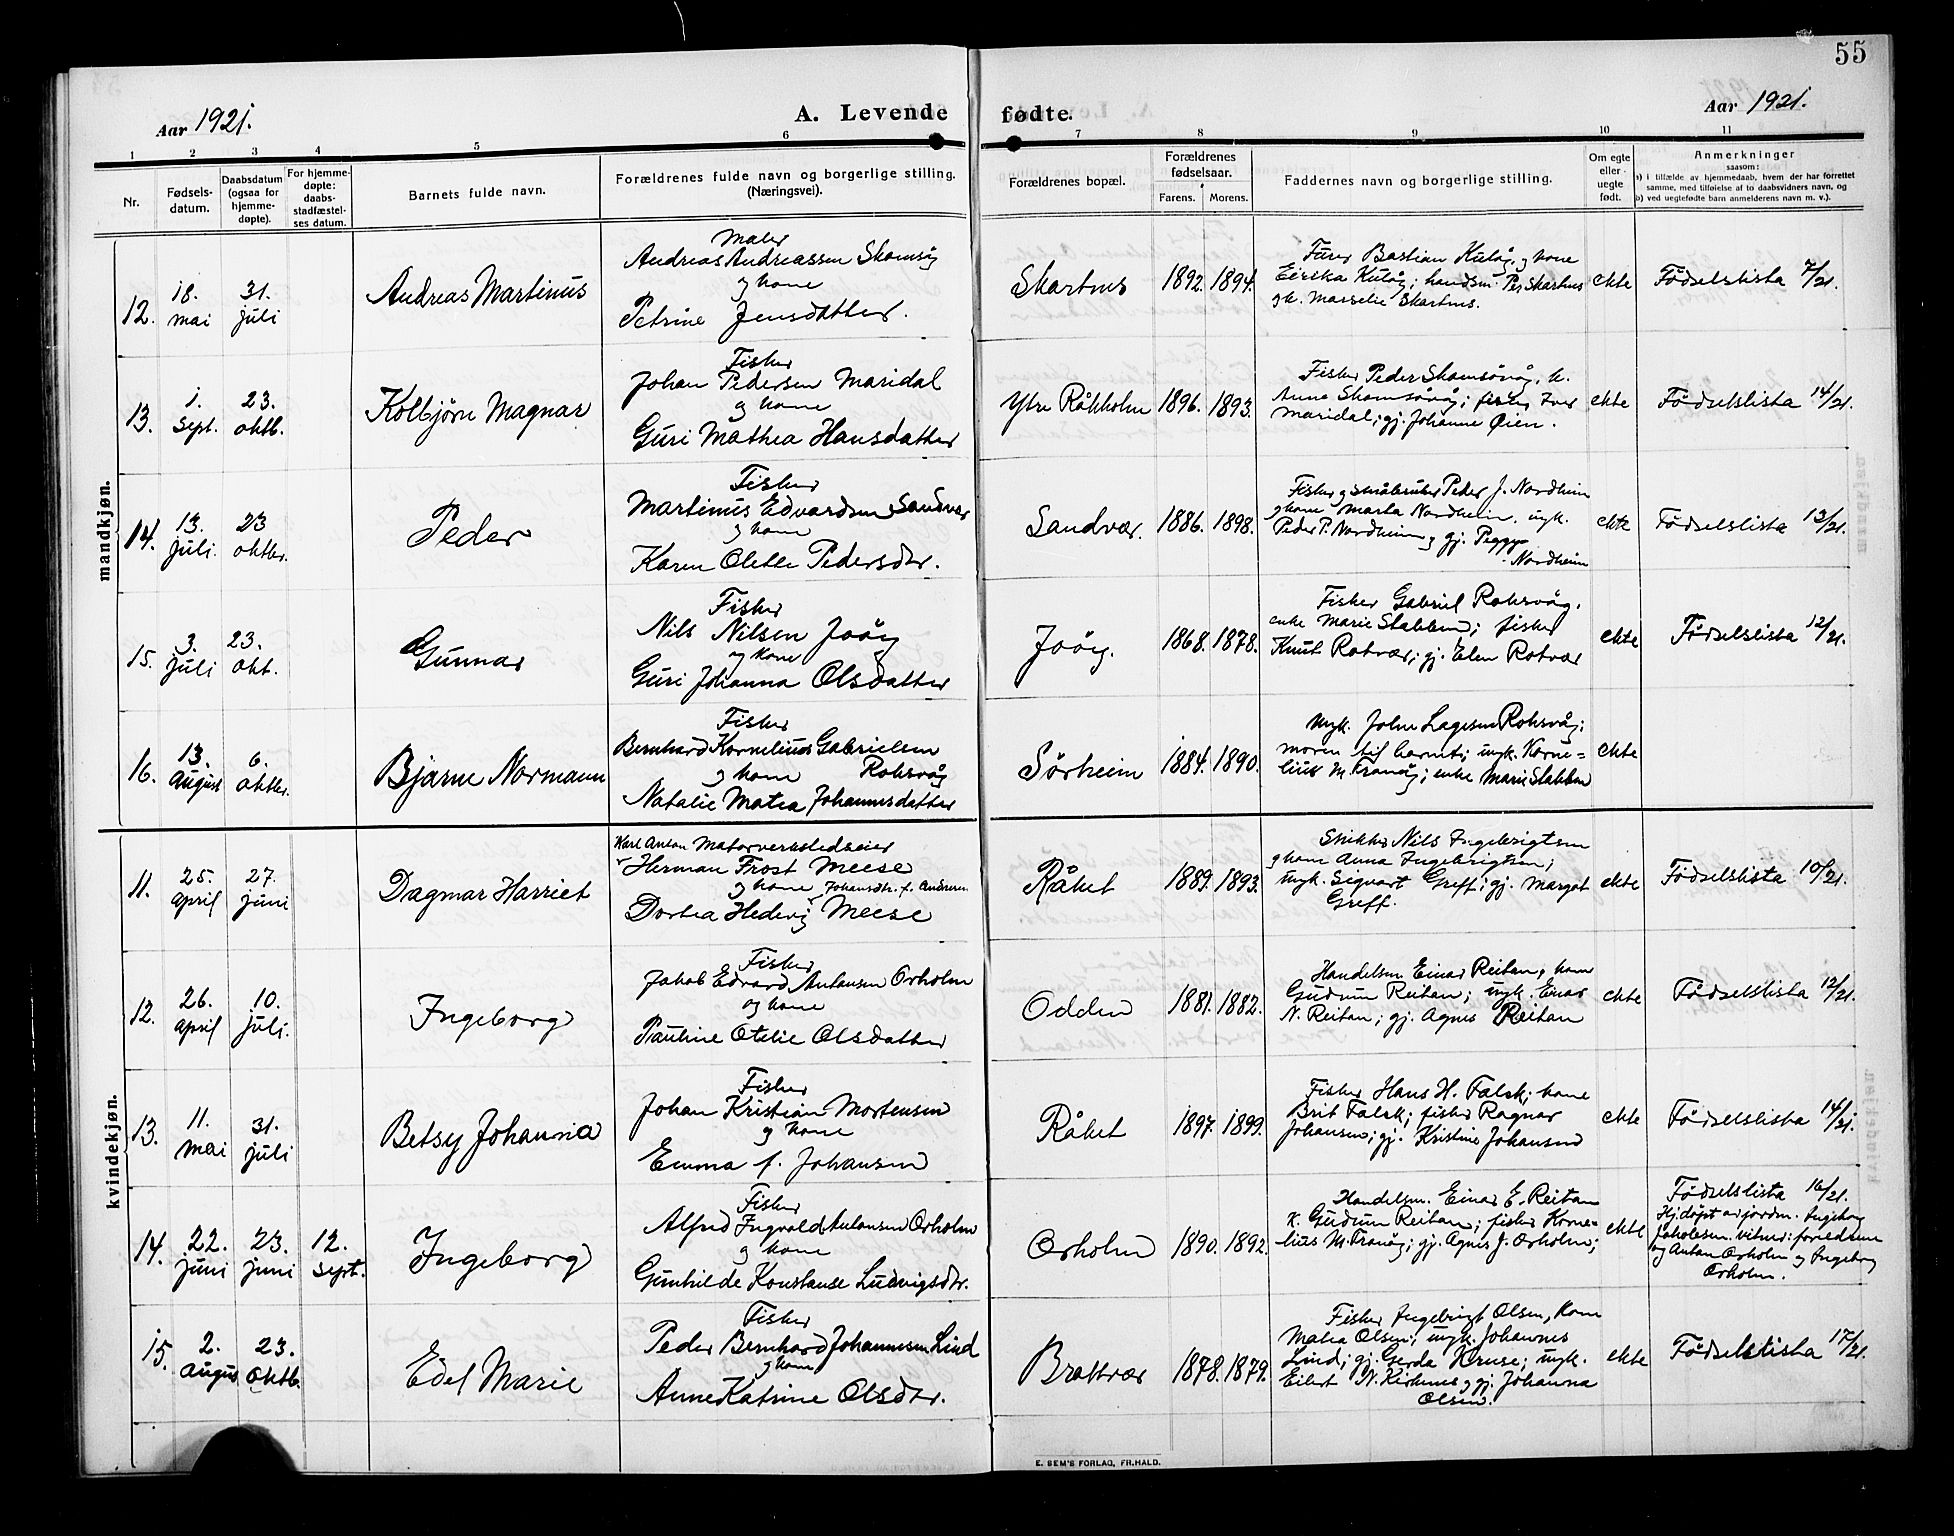 55
Aar 1921.
A. Levende fødte.
Aar 1921.
1 2 3 4 5 6 7 8 9 10 11
Nr.
Fødsels-
datum.
Daabsdatum
(ogsaa for
hjemme-
døpte).
For hjemme-
døpte:
daabs-
stadfæstel-
ses datum.
Barnets fulde navn.
Forældrenes fulde navn og borgerlige stilling.
(Næringsvei).
Forældrenes bopæl.
Forældrenes
fødselsaar.
Farens. Morens.
Faddernes navn og borgerlige stilling.
Om egte
eller
uegte
født.
Anmerkninger
saasom:
a) i tilfælde av hjemmedaab, hvem der har forrettet
samme, med tilføielse af to daabsvidners navn, og
b) ved uegtefødte barn anmelderens navn m. v.).
mandkjøn.
12.
18.
mai
31.
juli
Andreas Martinus
Maler
Andreas Andreassen Skomsøy
og kone
Petrine Jensdatter.
Skartnes
1892. 1894.
Bastian Kuløy, og kone
Eirika Kuløy; handsm. Per Skartnes
gk. Marselie Skartnes.
ekte
Fødselslista 7/21.
13.
1.
Sept.
23.
oktb.
Kolbjørn Magnar
Fisker
Johan Pedersen Maridal
og kone
Guri Mathea Hansdatter
Ytre Råkholm
1896. 1893.
Fisker Peder Skomsøvåg, k.
Anna Skomsøvåg; fisker Iver
Maridal; gj. Johanne Øien.
ekte
Fødselslista 14/21.
14.
13.
juli.
23
oktbr.
Peder
Fisker
Martinus Edvardsen Sandvær
og kone
Karen Olette Pedersdtr.
Sandvær.
1886. 1898.
Fisker og småbruker Peder J. Nordheim
og kone Marta Nordheim, ungk.
Peder P. Nordheim og gj. Peggy
Nordheim
ekte
Fødselslista 13/21.
15.
3.
juli
23.
okt.
Gunnar
Fisker
Nils Nilsen Joøy
og kone
Guri Johanna Olsdatter
Joøy.
1868. 1878.
Fisker Gabriel Roksvåg,
enke Marie Stabben; fisker
Knut Rotvær; gj. Elen Rotvær
ekte
Fødselslista 12/21.
16.
13.
August
6.
oktbr.
Bjarne Normann
Fisker
Bernhard Kornelius Gabrielsen
og kone Roksvåg
Natalie Matea Johannesdatter
Sørheim
1884. 1890.
Ungk. John Lagesen Roksvåg;
moren til barnet; ungk. Korne=
lius M. Franøy; enke Marie Stabben
ekte
kvindekjøn.
11.
25.
april
27.
juni
Dagmar Harriet
Karl Anton Motorverkstedseier
Herman Frost Meese
og kone Johansdtr. f. Andersen
Dortea Hedevig Meese
Råket
1889. 1893.
Snikker Nils Ingebrigtsen
og kone Anna Ingebrigtsen;
ungk. Sigvart Greff; gj. Margot
Greff.
ekte
Fødselslista 10/21.
12.
26.
april
10.
juli.
Ingeborg
Fisker
Jakob Edvard Antonsen Orholm
og kone
Pauline Otelie Olsdatter
Odden
1881. 1882.
Handelsm Einar Reitan, kone
Gudrun Reitan; ungk. Einar
N. Reitan; gj. Agnes Reitan
ekte
Fødselslista 12/21.
13.
11.
mai
31.
juli
Betsy Johanna
Fisker
Johan Kristian Mortensen
og kone
Emma f. Johansen
Råket
1897. 1899.
Fisker Hans H. Falsk; kone
Brit Falsk; fisker Ragnar
Johansen; gj. Kristine Johansen
ekte
Fødselslista 14/21.
14.
22.
juni
23.
juni
12.
sept.
Ingeborg
Fisker
Alfred Ingvald Antonsen Orholm
og kone
Gunhilde Konstanse Ludvigsdtr.
Orholm
1890. 1892.
Handelsm. Einar E. Reitan
k. Gudrun Reitan; fisker Korne=
lius M. Franøy; gj. Agnes J. Orholm;
ekte
Fødselslista 16/21.
Hj.døpt av jordm. Ingeborg
Jakobsen. Vitner: foreldrene
og Anton Orholm og Ingeborg
Orholm.
15.
2.
August
23.
oktb.
Edel Marie
Fisker
Peder Bernhard Johannesen Lind
og kone
Anne Katrine Olsdtr.
Brattvær
1878. 1879.
Fisker Ingebrigt Olsen, kone
Matea Olsen; ungk. Johannes
Lind; gj. Gerda Kruse; ungk.
Eilert N. Kirknes og gj. Johanna
Olsen.
ekte
Fødselslista 17/21.
E. SEM'S FORLAG, FR.HALD.